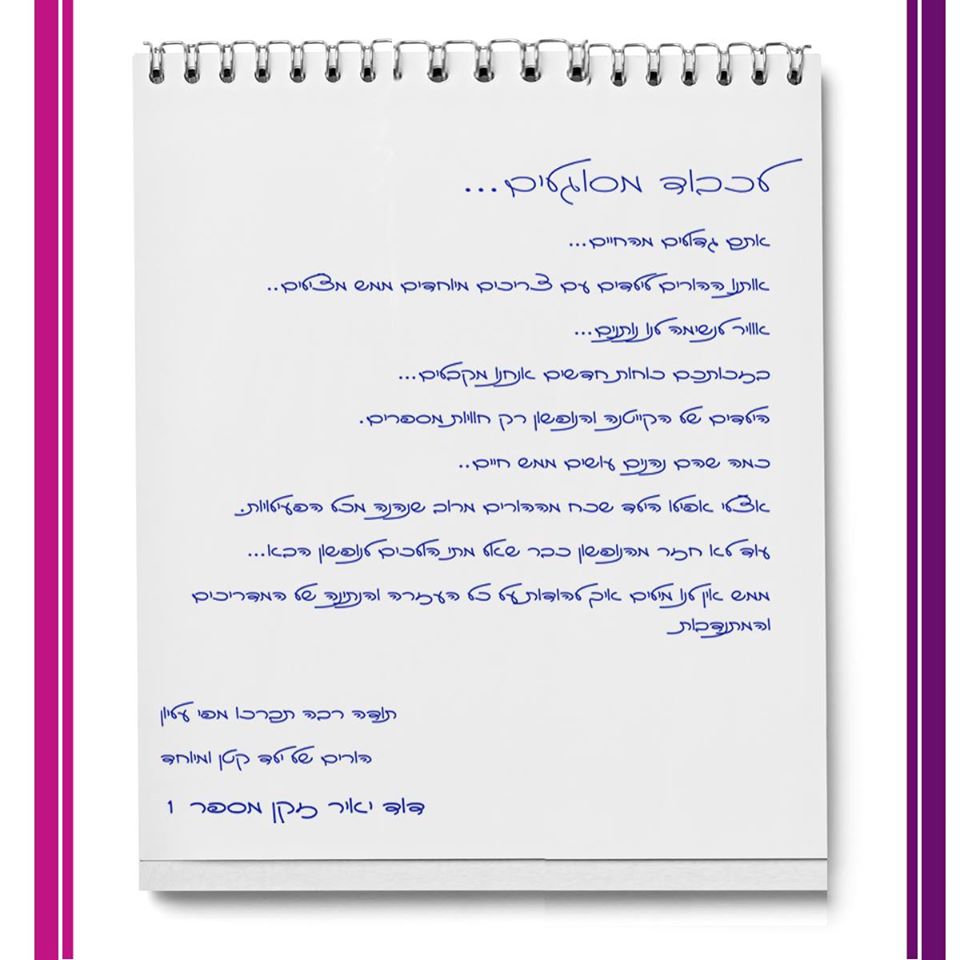 לכבוד מסוגלים...
אתם גדולים מהחיים...
אותנו ההורים לילדים עם צריכים מיוחדים ממש מצילים..
אוויר לנשימה לנו נותנים...
בזכותכם כוחות חדשים אנחנו מקבלים...
הילדים של הקייטנה והנופשון רק חוויות מספרים.
כמה שהם נהנים עושים ממש חיים..
אצלי אפילו הילד שכח מההורים מרוב שנהנה מכל הפעילויות.
עוד לא חזר מהנופשון כבר שאל מתי הולכים לנופשון הבא...
ממש אין לנו מילים איך להודות על כל העזרה והנתינה של המדריכים
והמתנדבות
תודה רבה תברכו מפי עליון
הורים של ילד קטן ומיוחד
דוד יאיר זקן מספר 1